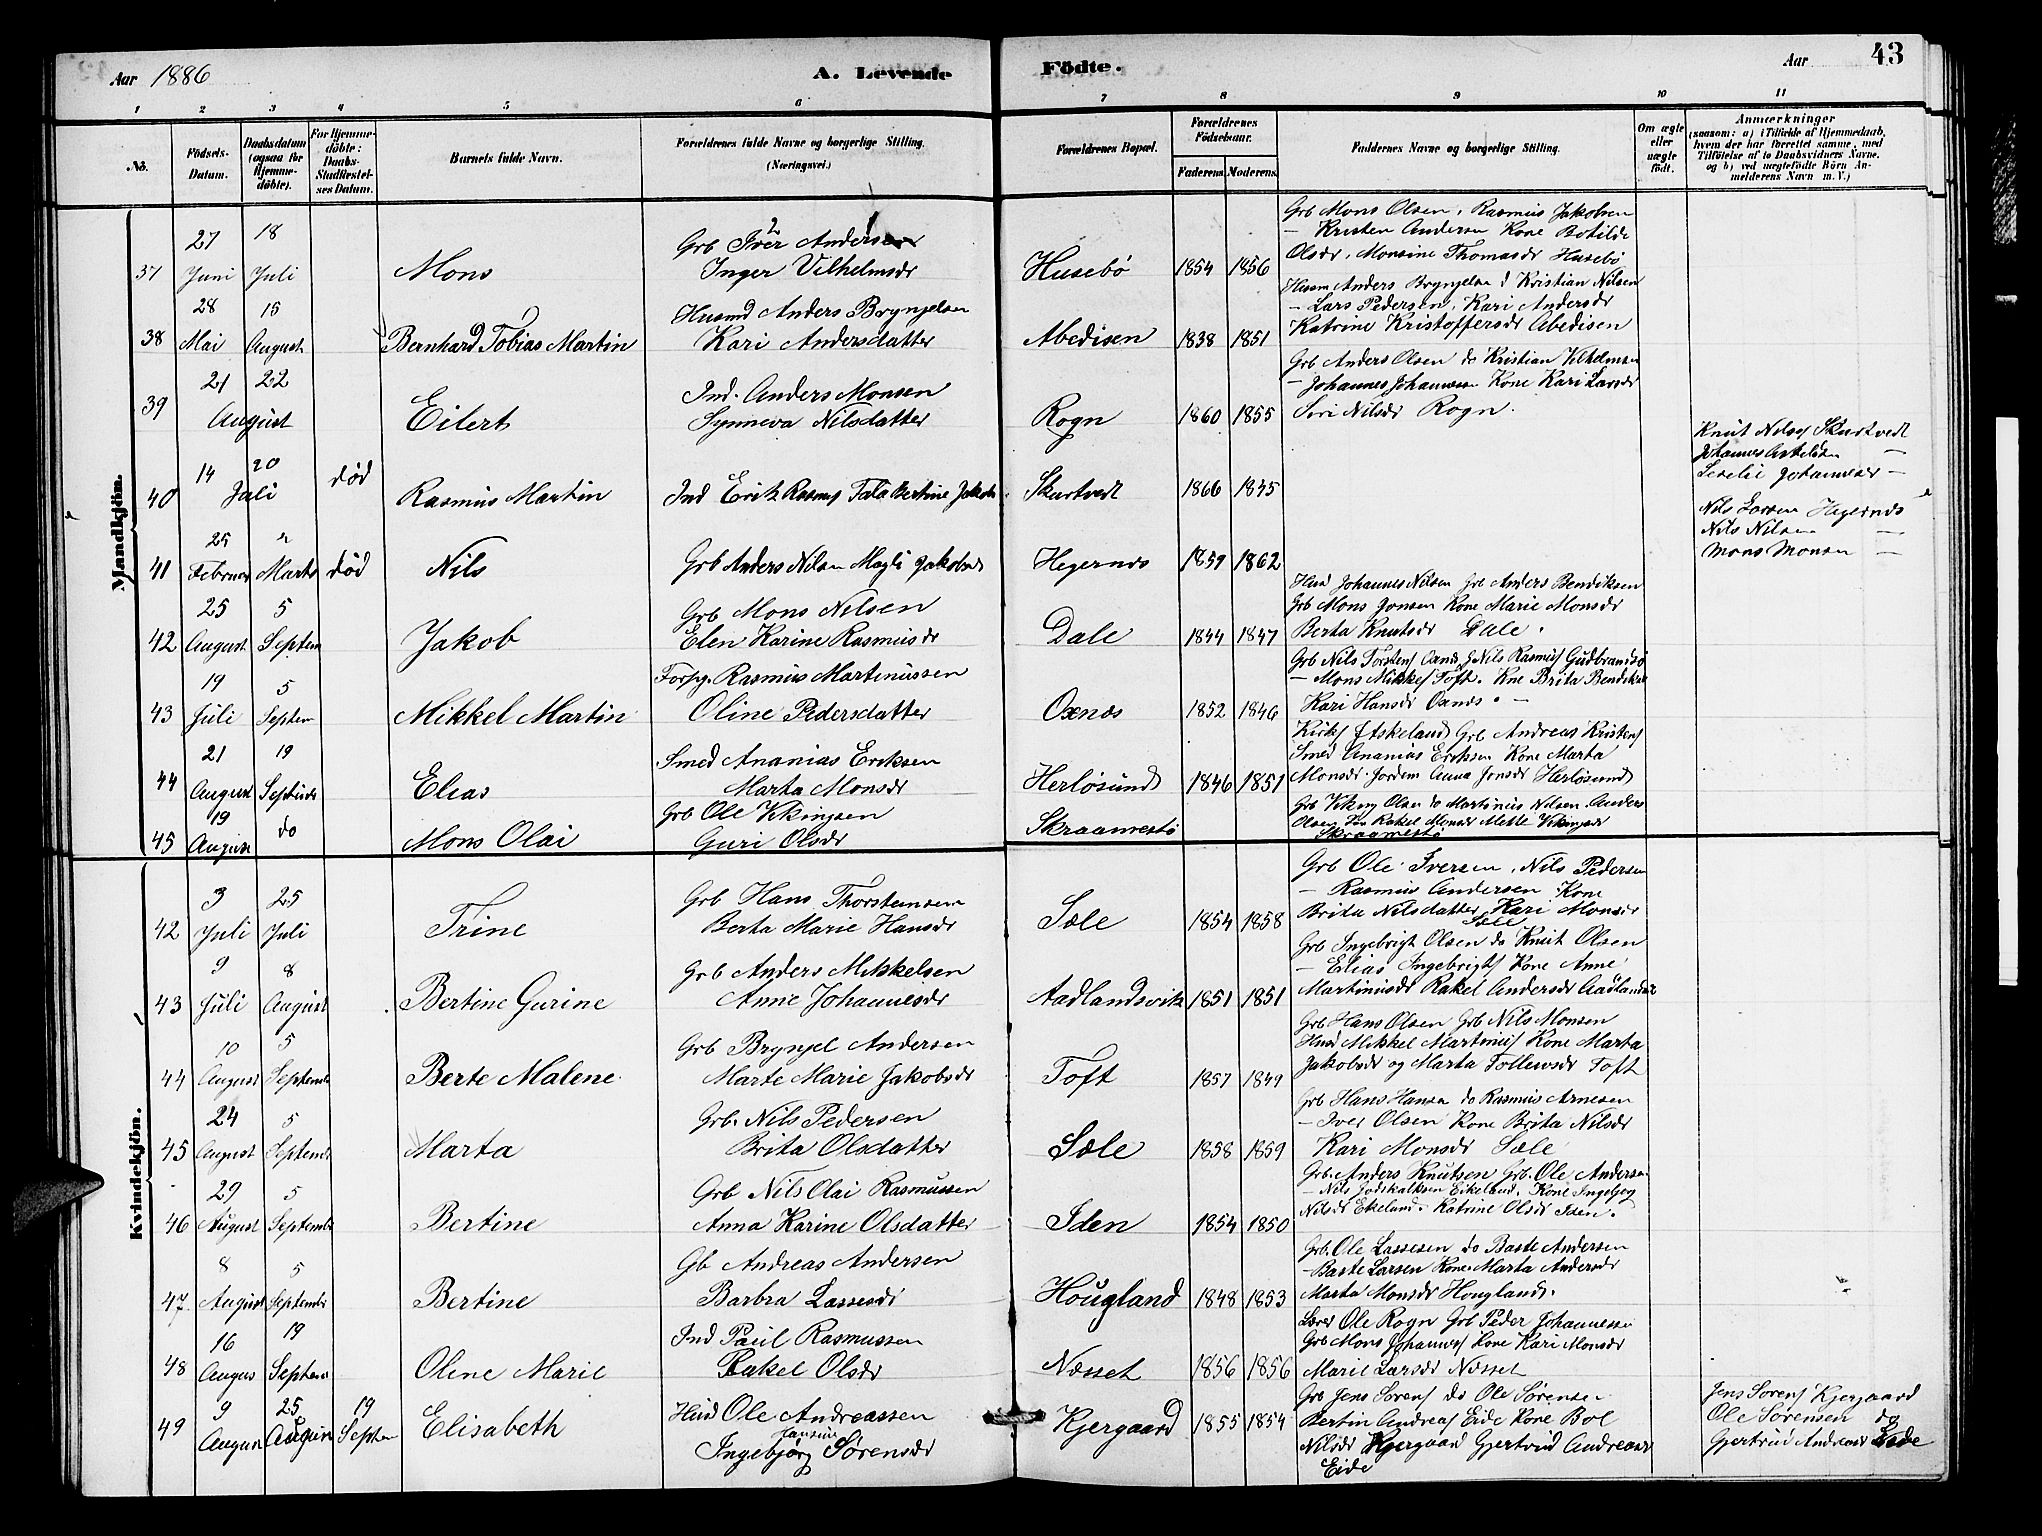 Aar 1886
A. Levende Födte.
Aar
43
1 2 3 4 5 6 7 8 9 10 11
No.
Födsels-Datum.
Daabsdatum (ogsaa for Hjemme-döbte).
For Hjemme-döbte: Daabs-Stadfæstel-ses Datum.
Barnets fulde Navn.
Forældrenes fulde Navne og borgerlige Stilling. (Næringsvei.)
Forældrenes Bopæl.
Forældrenes Födselsaar.
Faderens. Moderens.
Faddernes Navne og borgerlige Stilling.
Om ægte eller uægte födt.
Anmærkninger (saasom: a) i Tilfælde af Hjemmedaab, hvem der har forrettet samme, med Tilföielse af to Daabsvidners Navne, og b) ved uægtefödte Börn Anmelderens Navn m. V.)
Mandkjön.
37 27 Juni 18 Juli Mons
Grb Iver Andersen
Inger Vilhelmsdr
Husebö 1854 1856
Grb Mons Olsen, Rasmus Jakobsen
— Kristen Andersen Kone Botilde
Olsdr, Monsine Thomasdr Husebö
38 28 Mai 15 August Bernhard Tobias Martin
Husmd Anders Brynjelsen
Kari Andersdatter
Abedisen 1838 1851
Husm Anders Brynjelsen d Kristian Nilsen
— Lars Pedersen, Kari Andersdr
Katrine Kristoffersdr Abedisen
39 21 22 August Eilert
Ind. Anders Monsen
Synneva Nilsdatter
Rogn 1860 1855
Grb Anders Olsen do Kristian Vilhelmsen
— Johannes Johannessen Kone Kari Larsdr
Siri Nilsdr Rogn.
40 14 20 Juli død Rasmus Martin
Ind Erik Rasmus Tala Bertine Jakobs
Skurtvedt 1866 1845
Knut Nilsen Skurtvedt
Johannes Askelsen —
Seselie Johannesdr —
41 25 Februar 2 Marts død Nils
Grb Anders Nilsen Magli Jakobsdr
Hegernæs 1859 1862
Nils Larsen Hegernæs
Nils Nilsen —
Mons Monsen —
42 25 August 5 Septem Jakob
Grb Mons Nilsen
Elen Karine Rasmusdr
Dale 1844 1847
Husd Johannes Nilsen Grb Anders Bendiksen
Grb Mons Jonsen Kone Marie Monsdr
Berta Knutsdr Dale.
43 19 Juli 5 Septem Mikkel Martin
Forpg. Rasmus Martinussen
Oline Pedersdatter
Oxnæs 1852 1846
Grb Nils Torstens Oxnæs d Nils Rasmus Gudbrandsø
— Mons Mikkels Toft. Kone Brita Bendiks
Kari Hansdr Oxnæs. —
44 21 August 19 Septmbr Elias
Smed Ananias Eriksen
Marta Monsdr
Herlösund 1846 1851
Kirks Askeland Grb Andreas Kristens
Smed Ananias Eriksen Kone Marta
Monsdr. Jordem Anna Jonsdr Herlösund
45 19 August do Mons Olai
Grb Ole Vikingsen
Guri Olsdr
Skraamestö
Grb Viking Olsen do Martinus Nilsen Anders
Olsen Rakel Monsdr Mette Vikingsdr
Skraamestö
Kvindekjön.
42 3 Juli 25 Juli Trine
Grb Hans Thorstensen
Berta Marie Hansdr
Sæle 1854 1858
Grb Ole Iversen, Nils Pedersen
— Rasmus Andersen Kone
Brita Nilsdatter, Kari Monsdr
Sæle
43 9 Juli 8 August Bertine Gurine
Grb Anders Mikkelsen
Anne Johannesdr
Aadlandsvik 1851 1851
Grb Ingebrigt Olsen do Knut Olsen
— Elias Ingebrigts Kone Anne
Martinusdr Rakel Andersdr Aadlandsvik
44 10 August 5 Septembr Berte Malene
Grb Brynjel Andersen
Marte Marie Jakobsdr
Toft 1857 1849
Grb Hans Olsen Grb Nils Monsen
Husd Mikkel Martinus Kone Marta
Jakobsdr og Marta Tollevsdr Toft
45 24 August 5 Septembr Marta
Grb. Nils Pedersen
Brita Olsdatter
Sæle 1858 1859
Grb Hans Hansen do Rasmus Arnesen
— Iver Olsen Kone Brita Nilsdr
Kari Monsdr Sæle
46 29 August 5 Septembr Bertine
Grb Nils Olai Rasmussen
Anna Karine Olsdatter
Iden 1854 1850
Grb. Anders Knutsen Grb. Ole Andersen
— Nils Godskalksen Eikeland. Kone Ingeborg
Nilsdr Eikeland. Katrine Olsdr Iden.
47 8 August 5 Septembr Bertine
Gb Andreas Andersen
Barbra Lassesdr
Hougland 1848 1853
Grb. Ole Lassesen do Baste Andersen
— Baste Larsen Kone Marta Andersdr
Marta Monsdr Hougland.
48 16 Augus 19 Septem Oline Marie
Ind Paul Rasmussen
Rakel Olsdr
Næsset 1856 1856
Lærer Ole Rogn Grb Peder Johannessen
Grb Mons Johannes Kone Kari Monsdr
Marie Larsdr Næsset
49 9 August 25 August 19 Septem Elisabeth
Husd Ole Andreassen
Ingebjörg Jansine Sörensdr
Kjergaard 1855 1854
Grb Jens Sörens do Ole Sörensen
Bertin Andreas Eide Kone Bol
Nilsdr Kjergaard Gjertrud Andreasdr
Eide
Jens Sörens Kjergaard
Ole Sörensen do
Gjertrud Andreasdr Eide